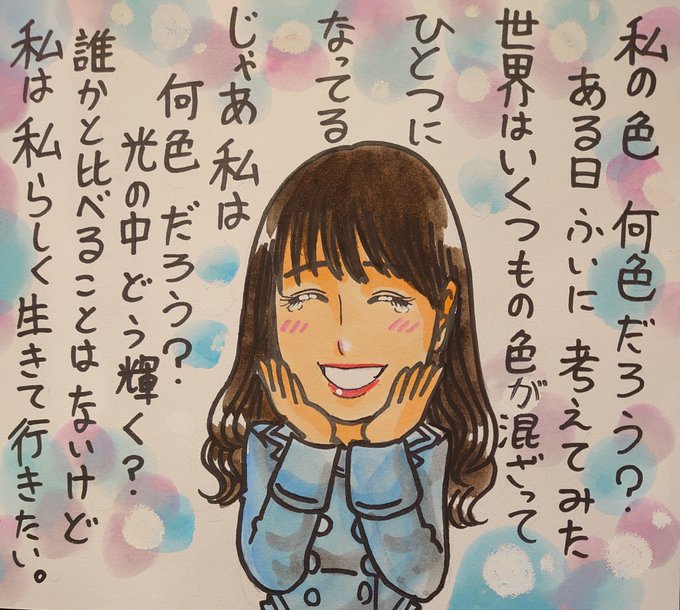 私の色 何色だろう？
ある日 ふいに 考えてみた
世界はいくつもの色が混ざって
ひとつに
なってる
じゃあ 私は
何色 だろう？
光の中 どう 輝く？
誰かと比べることはないけど
私は 私らしく生きて行きたい。